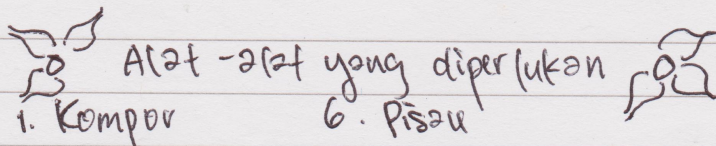 Alat-alat yang diperlukan
1. Kompor 6. Pisau